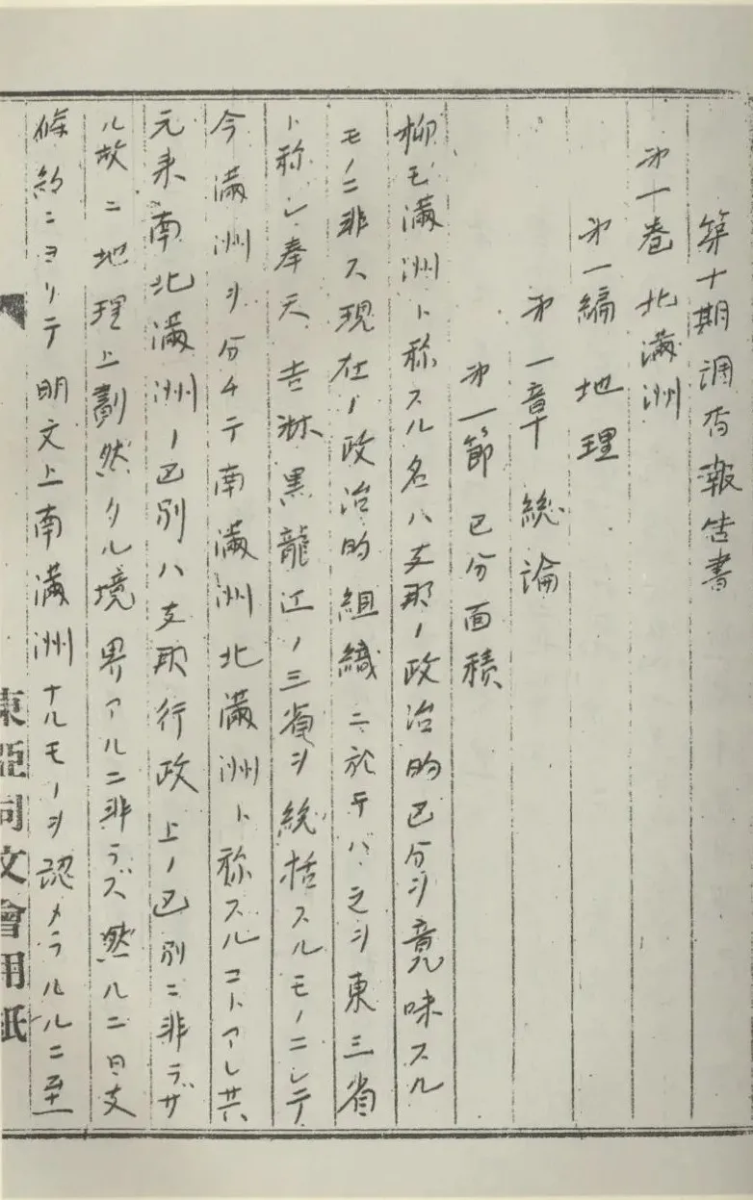 第十期調査報告書
第一巻 北滿洲
第一編 地理
第一章 総論
第一節 区分面積
抑モ滿洲ト称スル名ハ支那ノ政治的区分ヲ意味スル
モノニ非ス現在ノ政治的組織ニ於テハ之ヲ東三省
ト称シ奉天吉林黒龍江ノ三省ヲ統括スルモノニシテ
今滿洲ヲ分チテ南滿洲北滿洲ト称スルコトアレ共
元来南北滿洲ノ区別ハ支那行政上ノ区別ニ非ラザ
ル故ニ地理上劃然タル境界アルニ非ラズ然ルニ日支
條約ニヨリテ明文上南滿洲ナルモノヲ認メラルルニ至
東亞同文會用紙